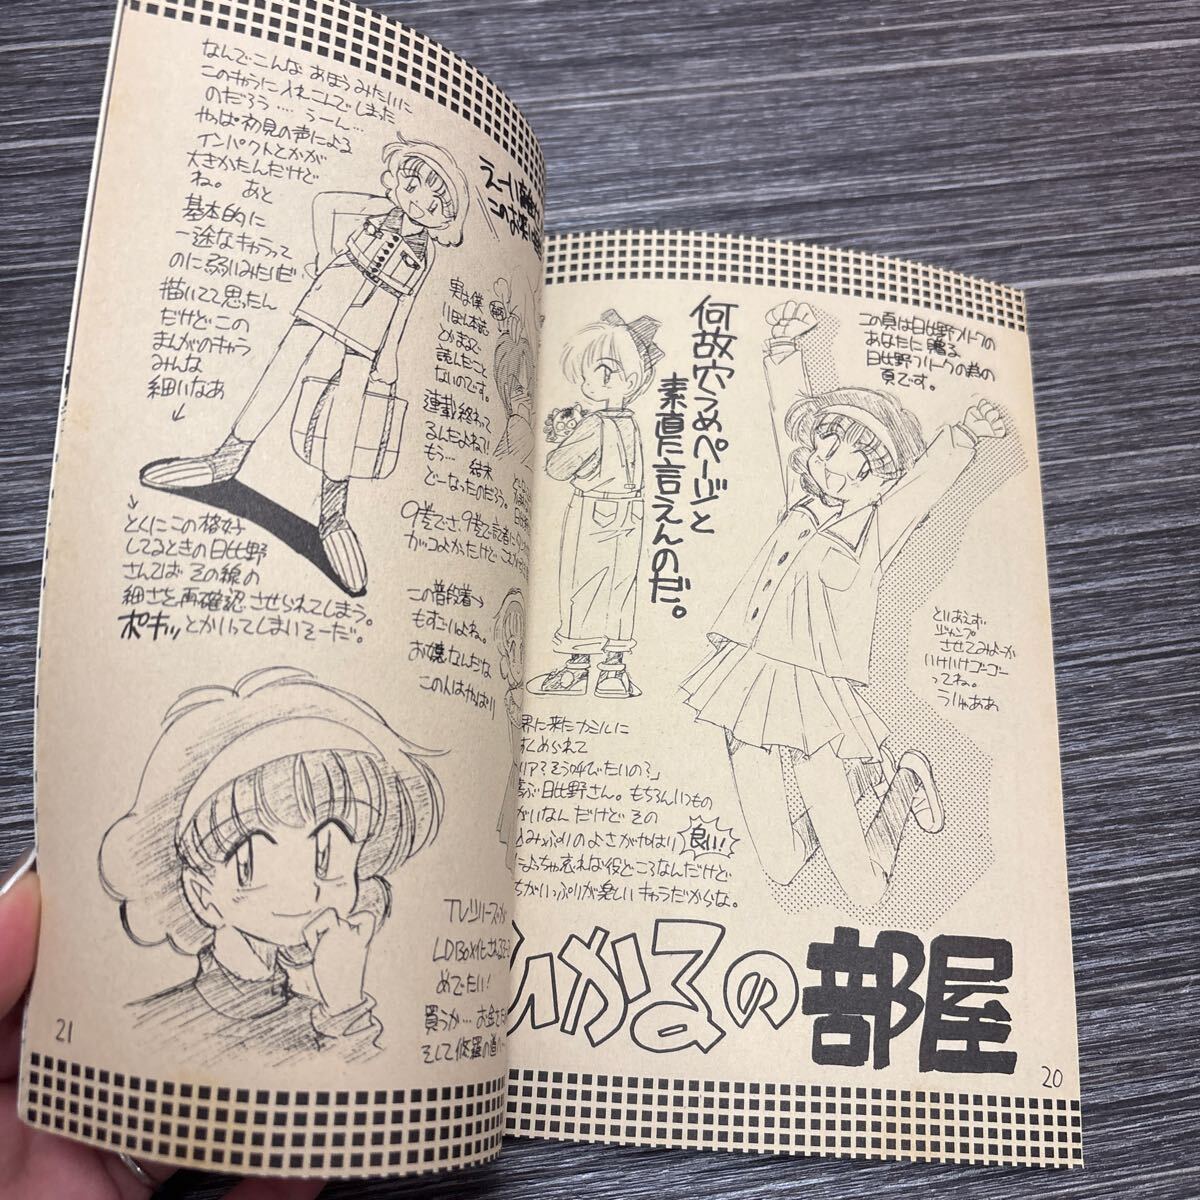 この頁は日比野フリークの
あなたに贈る
日比野フリークの為の
頁です。
何故穴うめページと
素直に言えんのだ。
とりあえず
ジャンプ
させてみよーか
いけいけゴーゴー
ってね。
うりゃああ
界に来たナミルに
られて
リア?そう呼びたいの?」
ぶ日比野さん。もちろんいつもの
がいなんだけどその
みっぷりのよさがやはり 良い!
ちゃ哀れな役どころなんだけど
ちがいっぷりが楽しいキャラだからな。
ひかるの部屋
20
なんでこんなあほうみたいに
このキャラに入れこんでしまった
のだろう‥‥うーん…
やっぱ初見の声による
インパクトとかが
大きかったんだけど
ね。あと
基本的に
一途なキャラって
のに弱いみたいだ
描いてて思ったん
だけどこの
まんがのキャラ
みんな
細いなあ
↓
えーい
このお
実は僕
りぼん本誌
でまるで
読んだこと
ないのです。
連載終わって
るんだよね?!
もう… 結末
どーなったのだろう。
9巻でさ、9巻で記者に
カッコよかったけど
この普段着→
もすごいよね。
お嬢なんだな
この人はやっぱり
→とくにこの格好
してるときの日比野
さんてばその線の
細さを再確認させられてしまう。
ポキッとかいってしまいそーだ。
TVシリーズ
LDBox化される
めでたい!
買うか… お金
そして修羅の道
21